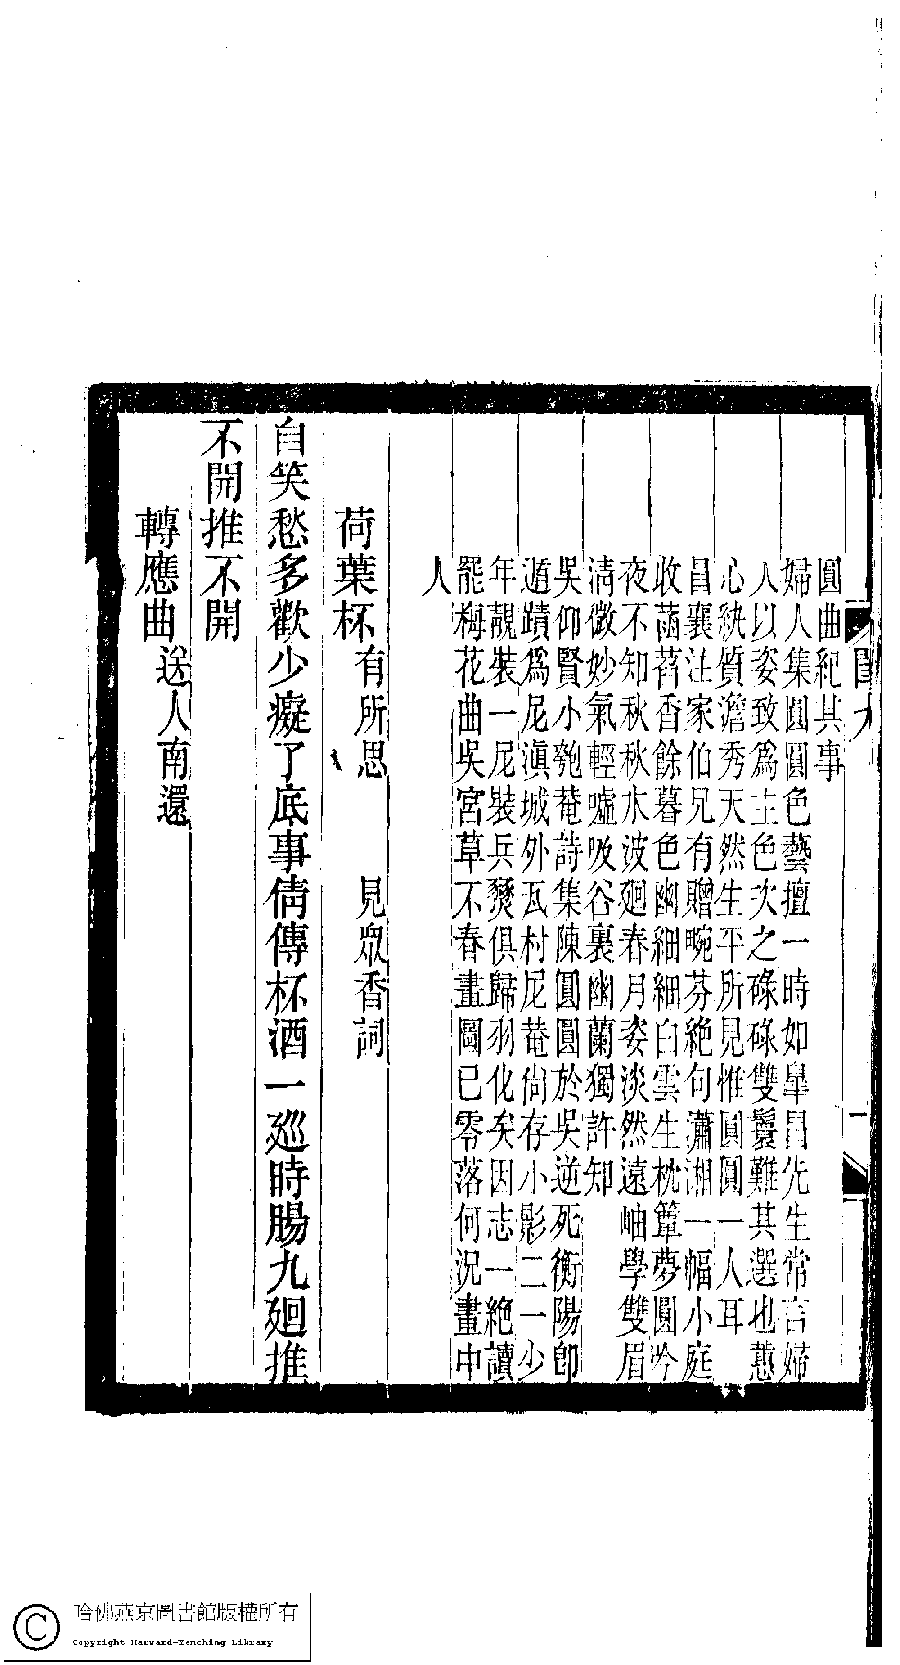 圓曲紀其事
婦人集圓圓色藝擅一時如臯冒先生常言婦
人以姿致爲主色次之碌碌雙鬟難其選也蕙
心紈質澹秀天然生平所見惟圓圓一人耳
冒襄注家伯兄有贈畹芬絶句瀟湘一幅小庭
收菡萏香餘暮色幽細細白雲生枕簟夢圓吟
夜不知秋秋水波廻春月姿淡然遠岫學雙眉
淸微妙氣輕噓吸谷裏幽蘭獨許知
吳仰賢小匏菴詩集陳圓圓於吳逆死衡陽卽
遁蹟爲尼滇城外瓦村尼菴尙存小影二一少
年靚裝一尼裝兵燹俱歸羽化矣因志一絶讀
罷梅花曲吳宮草不春畫圖已零落何況畫中
人
荷葉杯 有所思 見眾香詞
自笑愁多歡少癡了底事倩傳杯酒一廵時腸九廻推
不開推不開
轉應曲 送人南還
一
哈佛燕京圖書館版權所有
Copyright Harvard-Yenching Library